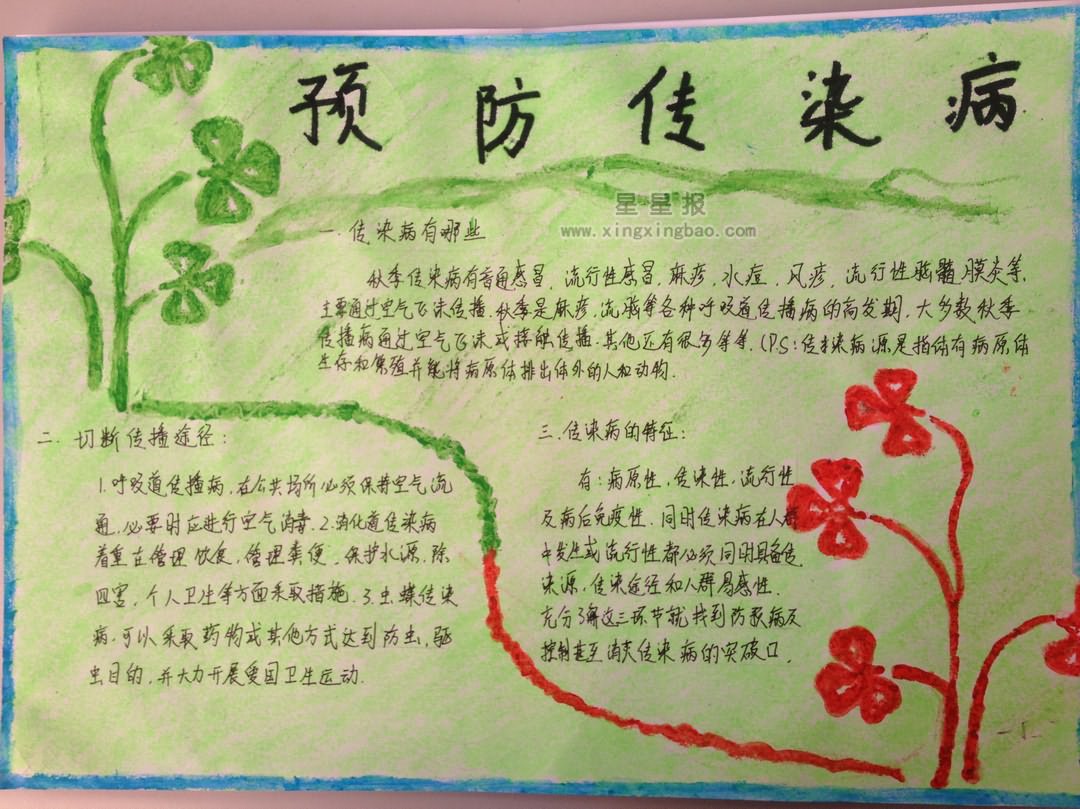 预防传染病
星星报
www.xingxingbao.com
一.传染病有哪些
秋季传染病有普通感冒、流行性感冒、麻疹、水痘、风疹、流行性脑髓膜炎等.
主要通过空气飞沫传播.秋季是麻疹,流脑等各种呼吸道传播病的高发期,大多数秋季
传播病通过空气飞沫或接触传播.其他还有很多等等.(PS:传染病源是指体有病原体
生存和繁殖并能将病原体排出体外的人和动物.
二.切断传播途径:
1.呼吸道传播病,在公共场所必须保持空气流
通,必要时应进行空气消毒.2.消化道传染病
着重在管理饮食,管理粪便,保护水源,除
四害,个人卫生等方面采取措施.3.虫蝶传染
病,可以采取药物或其他方式达到防虫,驱
虫目的,并大力开展爱国卫生运动.
三.传染病的特征:
有:病原性,传染性,流行性
及病后免疫性.同时传染病在人群
中发生或流行性都必须同时具备传
染源,传染途径和人群易感性.
充分了解这三环节就找到防疫病及
控制甚至消灭传染病的突破口.